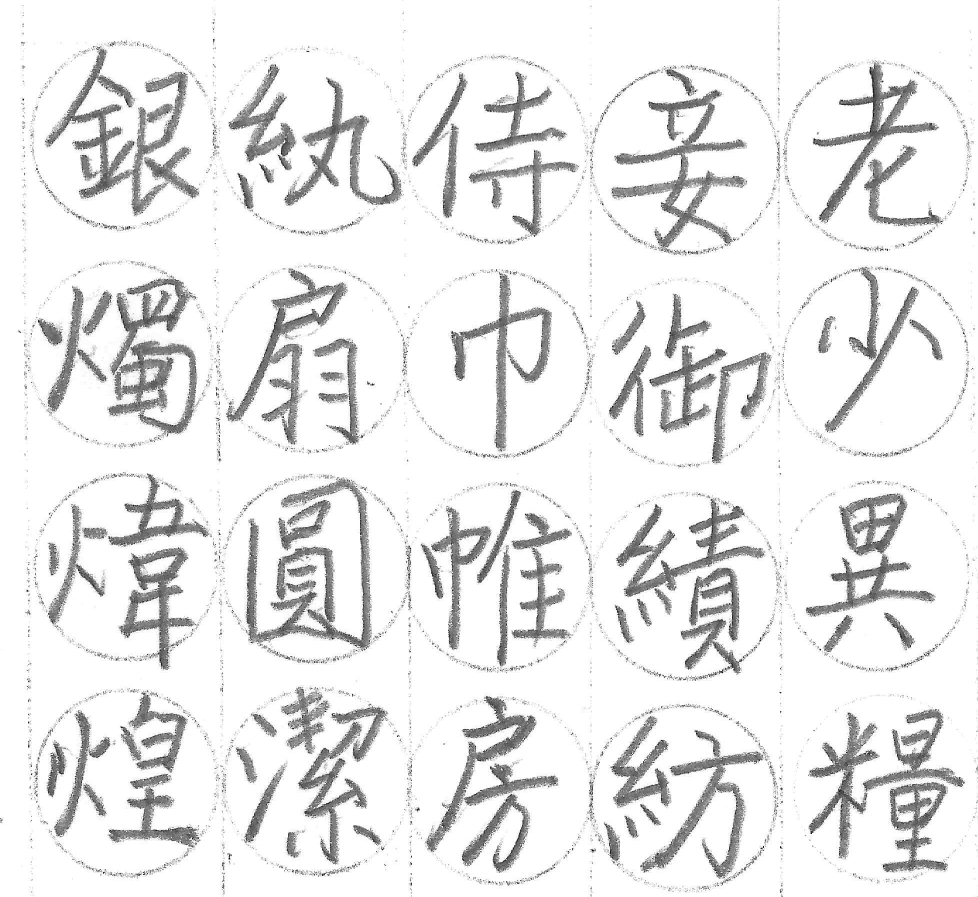 老少異糧
妾御績紡
侍巾帷房
紈扇圓潔
銀燭煒煌